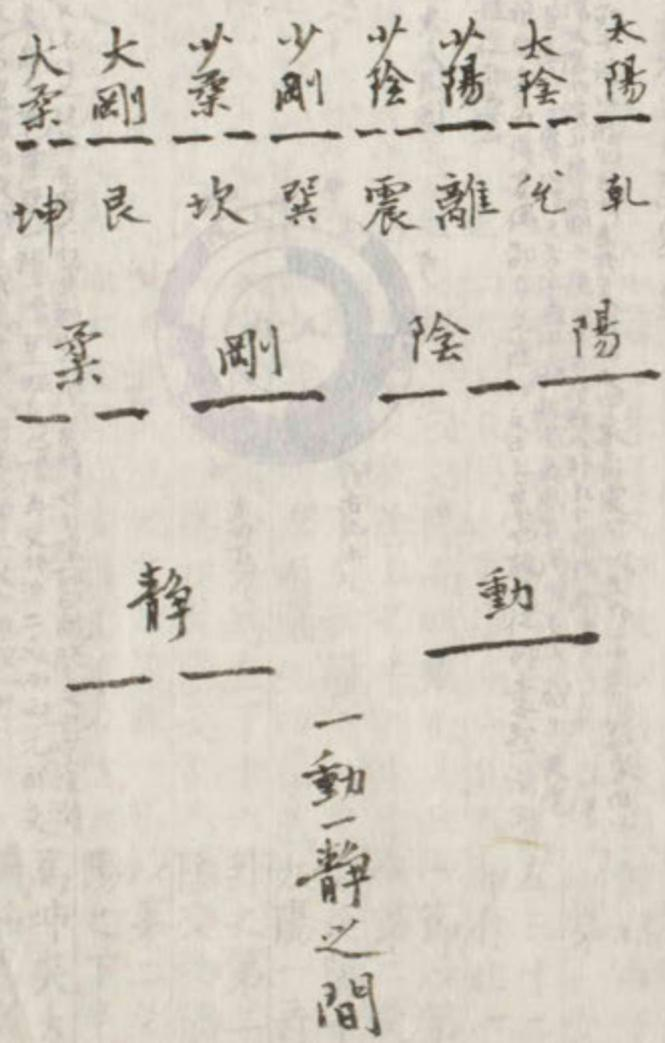 太陽 太陰 少陽 少陰 少剛 少柔 大剛 大柔
乾 兌 離 震 巽 坎 艮 坤
陽 陰 剛 柔
動 静
一動一静之間